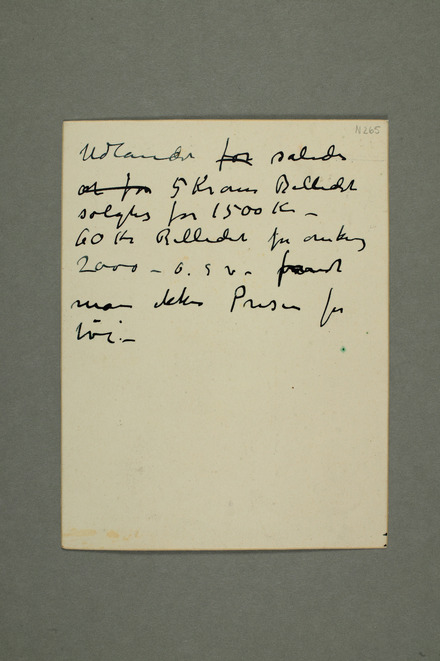 N265
Udlandet for saledes
at for 5 Krones Billedet
solgtes for 1500 Kr –
60 Kr Billedet for omkring
2000 – o. s v.
man ikke Prisen for